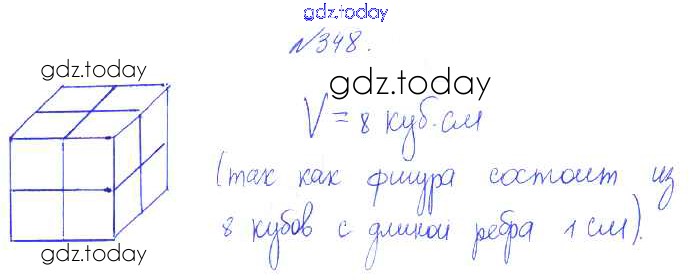 gdz.today
№348.
gdz.today
gdz.today
V = 8 куб.см
(так как фигура состоит из
8 кубов с длиной ребра 1 см).
gdz.today